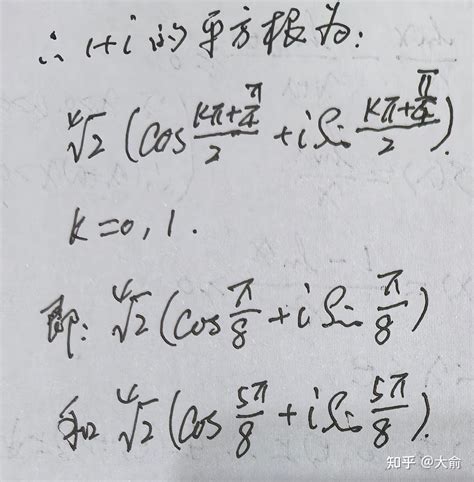 ∴ 1+i 的平方根为:
∜2 (cos (kπ+π/4)/2 + i sin (kπ+π/4)/2).
k=0,1.
即: ∜2 (cos π/8 + i sin π/8)
和 ∜2 (cos 5π/8 + i sin 5π/8).
知乎 @大俞